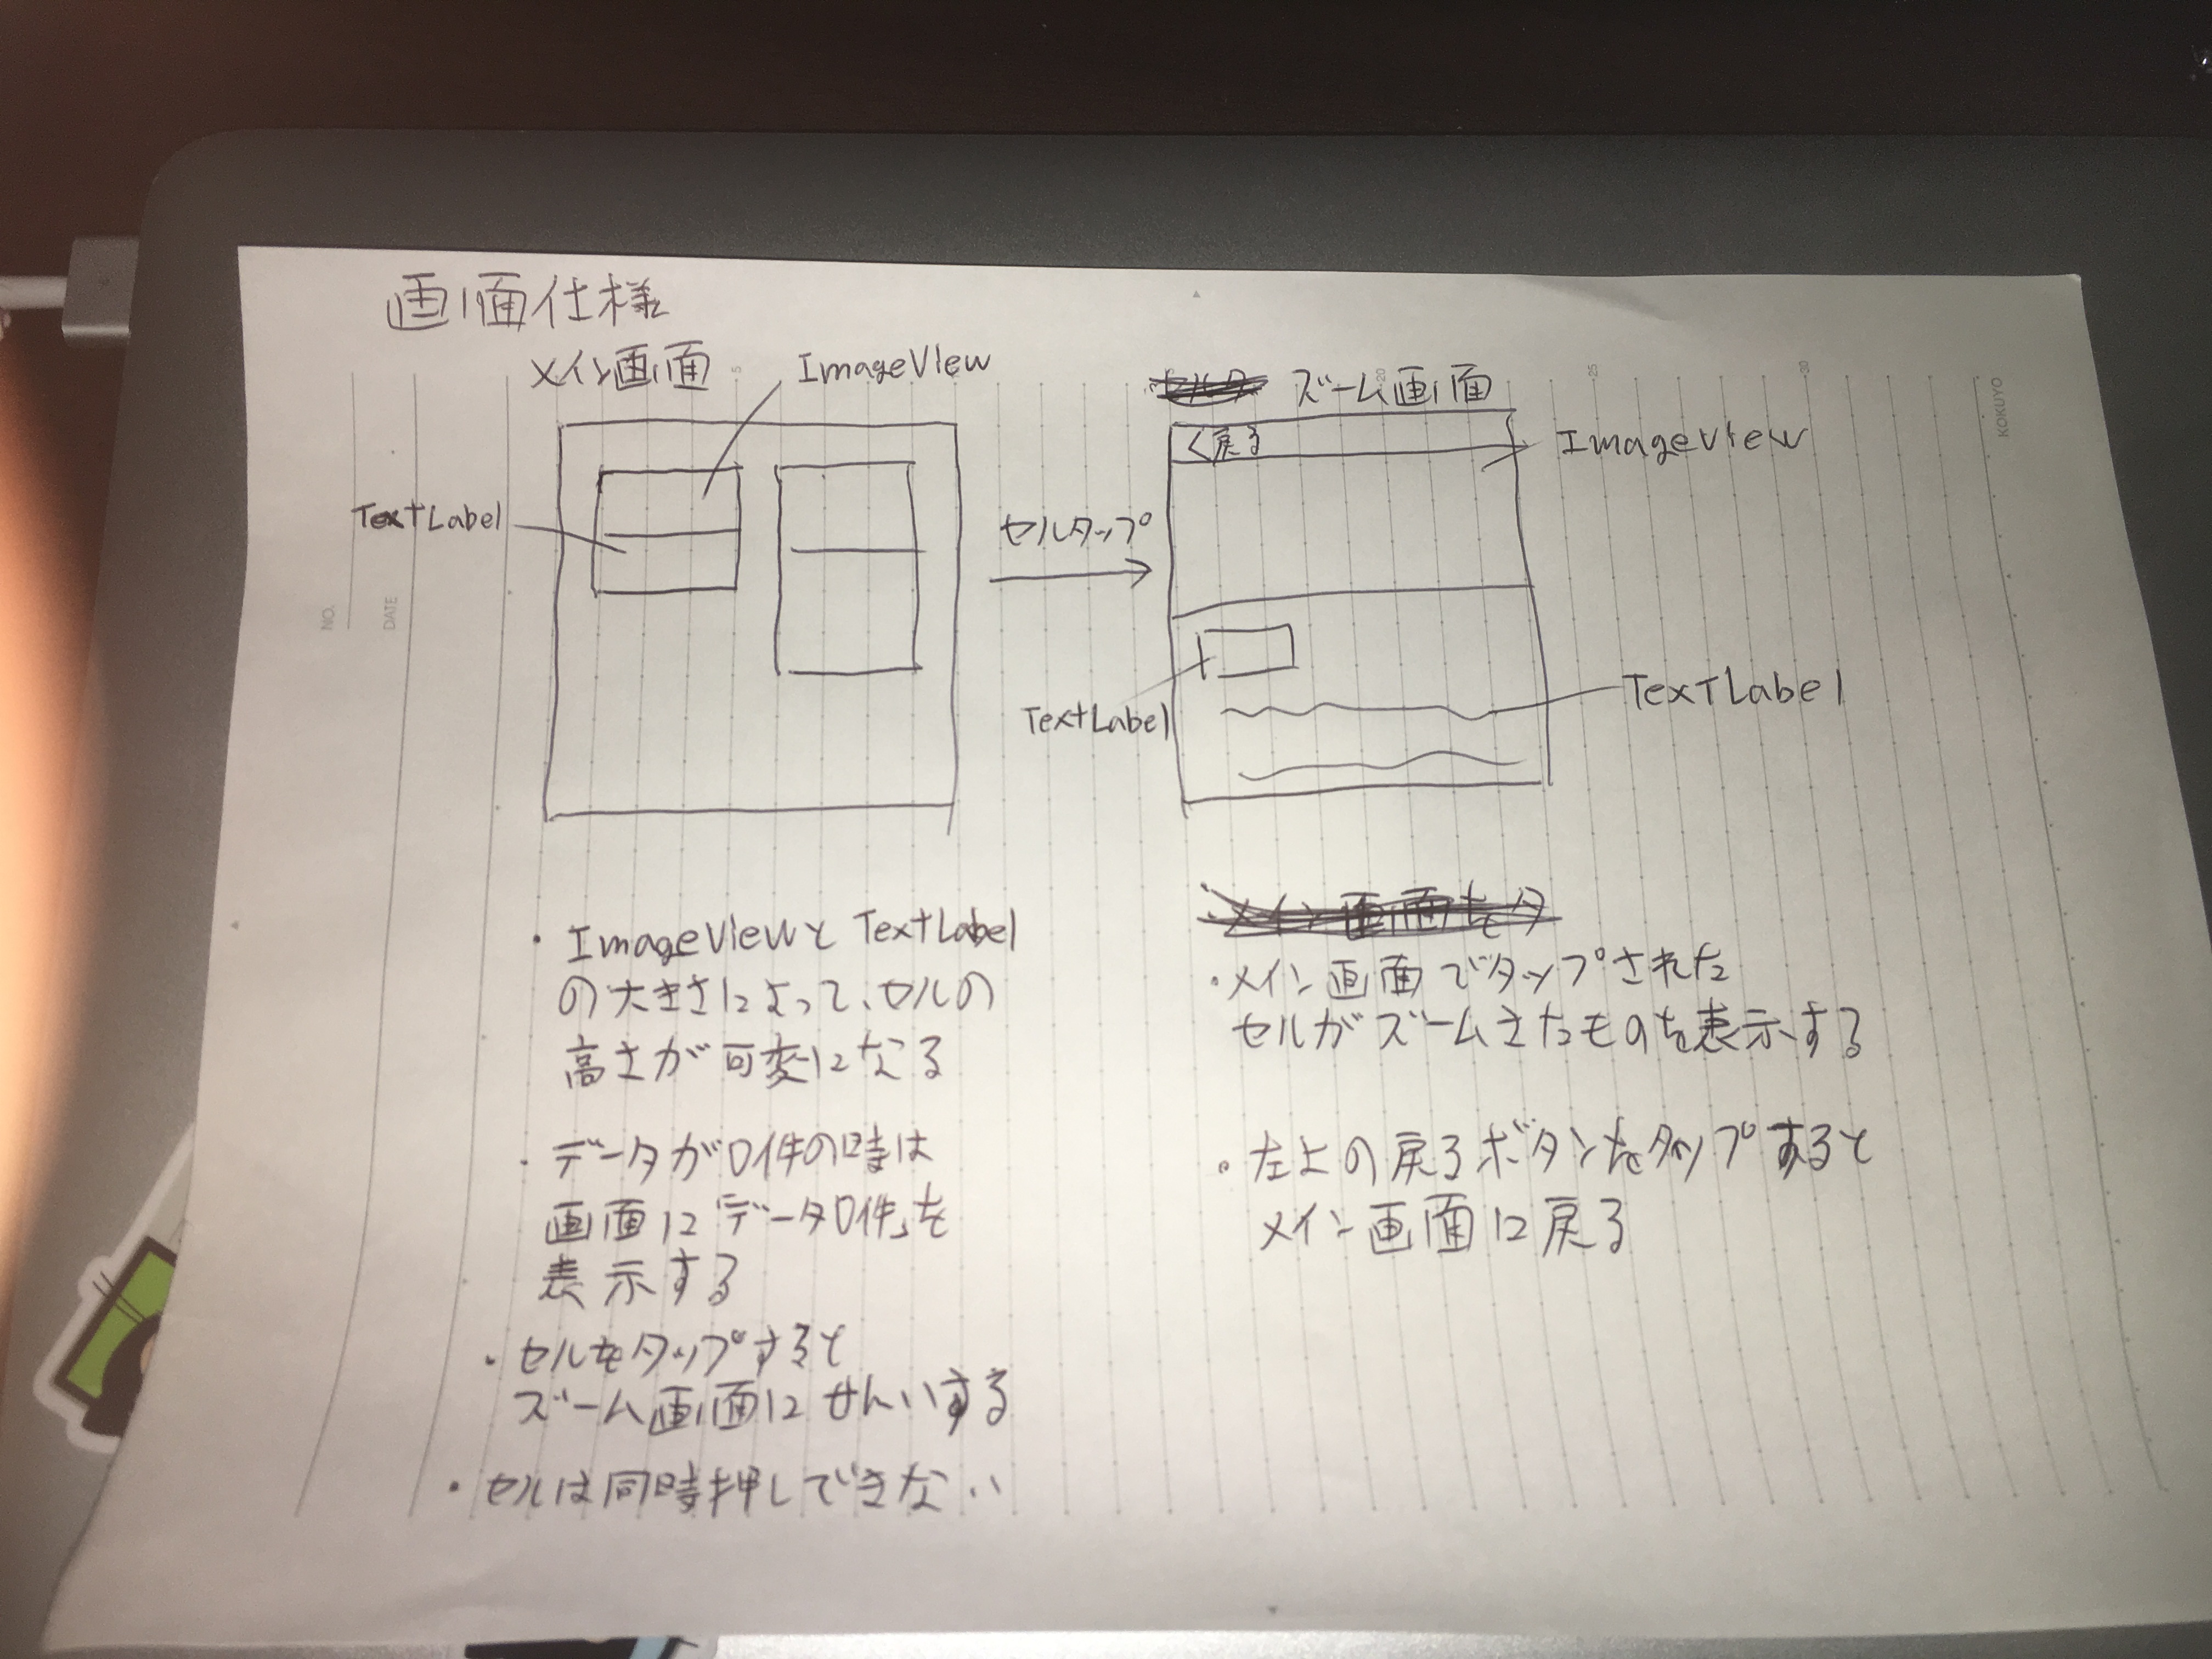 画面仕様
メイン画面
ImageView
TextLabel
セルタップ
ズーム画面
く戻る
ImageView
TextLabel
TextLabel
・ImageViewとTextLabel
の大きさによって、セルの
高さが可変になる
・データが0件の時は
画面に「データ0件」を
表示する
・セルをタップすると
ズーム画面にせんいする
・セルは同時押しできない
メイン画面をタ
・メイン画面でタップされた
セルがズームきたものを表示する
・左上の戻るボタンをタップすると
メイン画面に戻る
NO.
DATE
5
20
25
30
KOKUYO